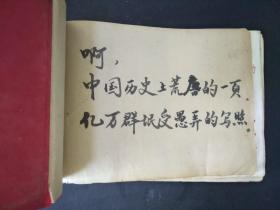 啊，
中国历史上荒唐的一頁
亿万群氓受愚弄的写照